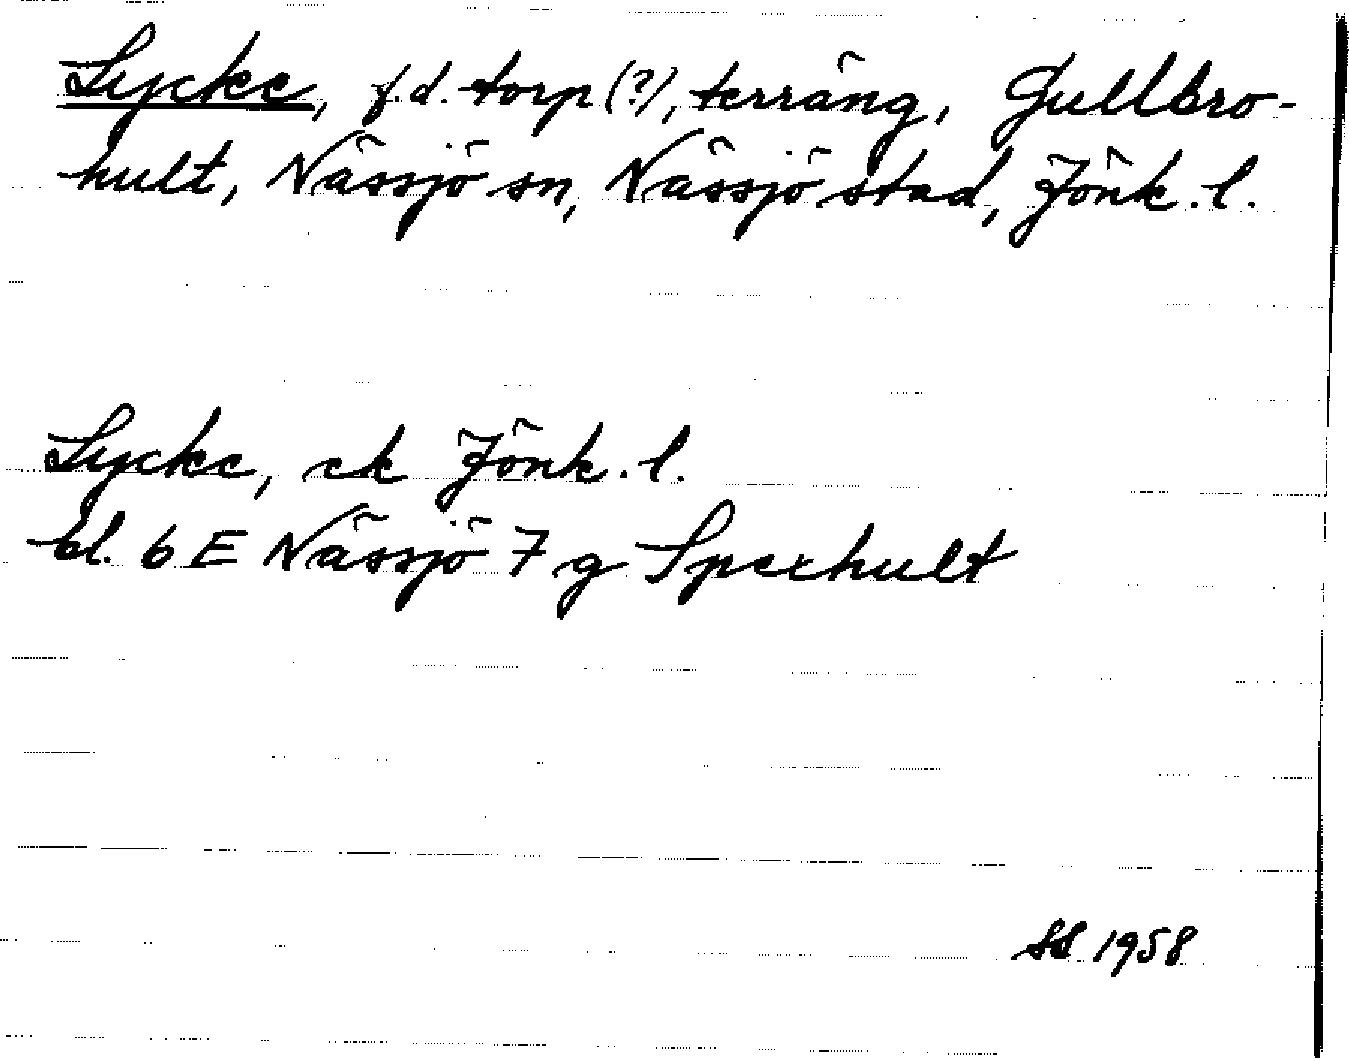 Lycke, f.d. torp (?), terräng, Gullbro-
hult, Nässjö sn, Nässjö stad, Jönk. l.
Lycke, ek Jönk. l.
bl. 6 E Nässjö 7 g Sperhult
SS 1958